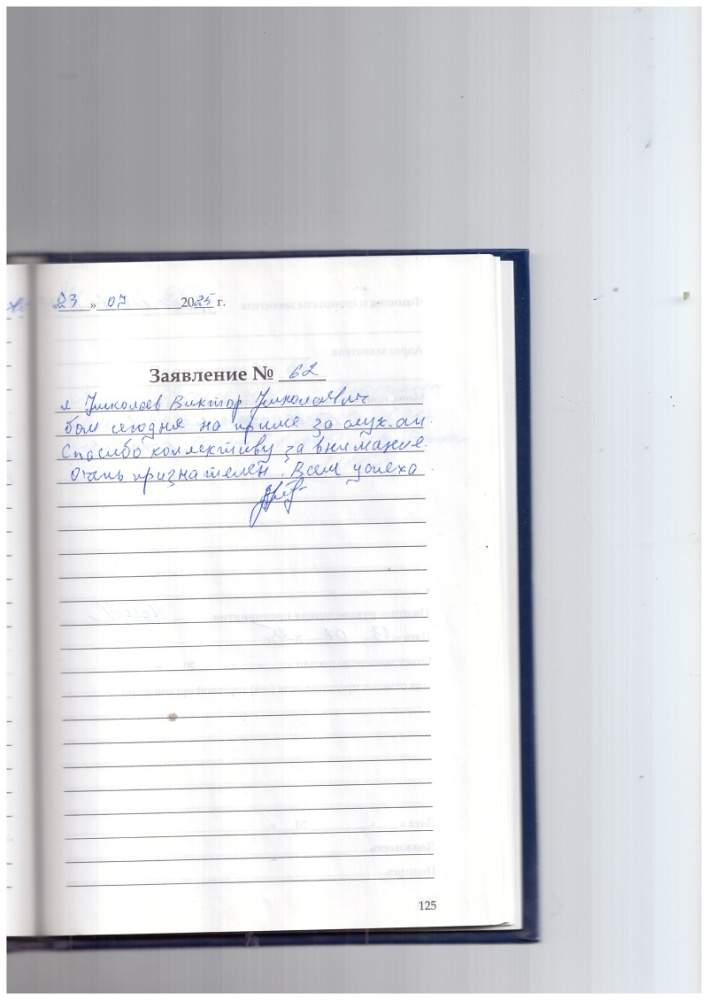 23 » 07 2025 г.
Заявление № 62
я Николаев Виктор Николаевич
был сегодня на приме за слух.ап.
Спасибо коллективу за внимание.
Очень признателен. Всем успеха.
125